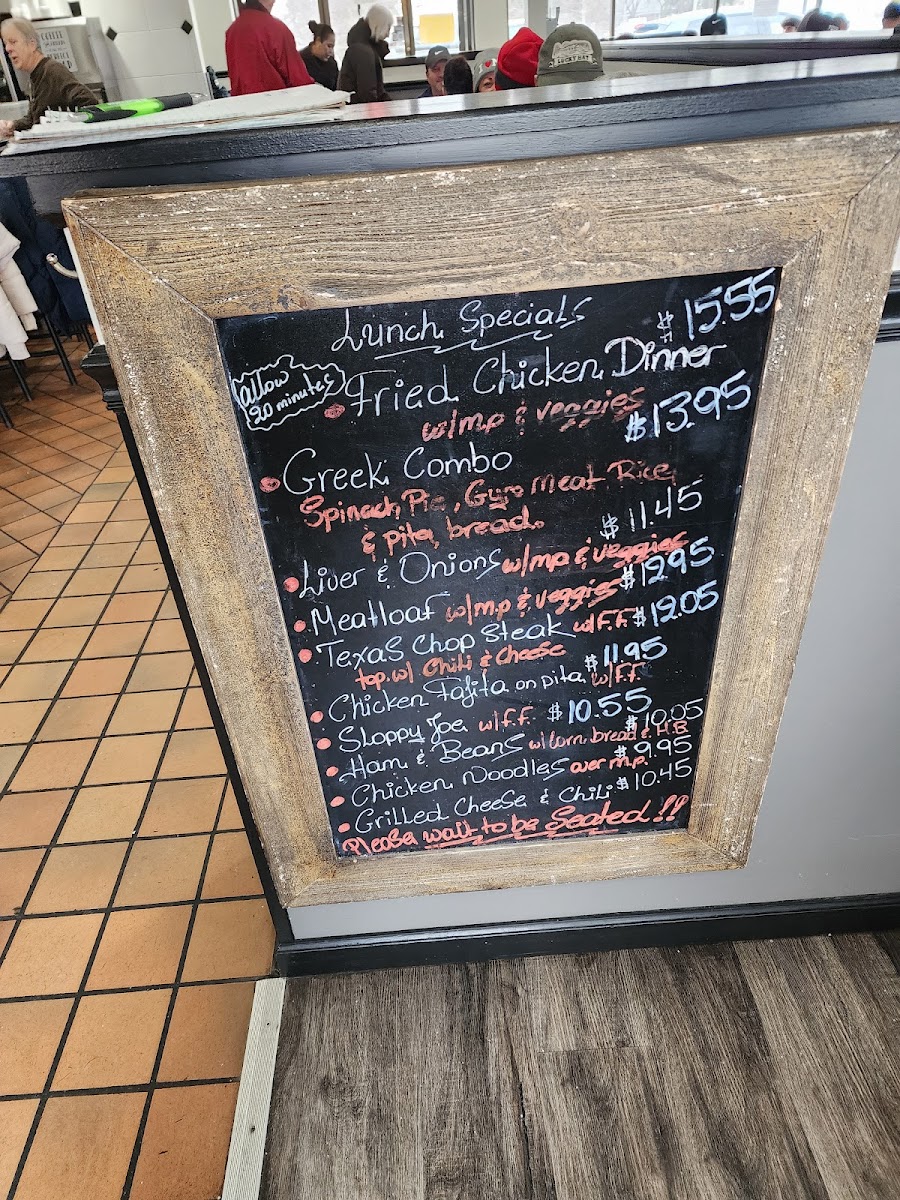 Lunch Specials
$15.55
allow
20 minutes
• Fried Chicken Dinner
w/mp & veggies
$13.95
• Greek Combo
Spinach Pie, Gyro Meat, Rice,
& pita bread.
$11.45
• Liver & Onions w/mp & veggies
$12.95
• Meatloaf w/m.p & veggies
• Texas Chop Steak w/F.F. $12.05
top w/ Chili & Cheese
$11.95
• Chicken Fajita on pita w/F.F.
• Sloppy Joe w/F.F. $10.55
$10.05
• Ham & Beans w/ Corn bread & H.B
$9.95
• Chicken Noodles over m.p.
• Grilled Cheese & Chili $10.45
Please wait to be Seated!!
COFFEE
LUCKY HAT